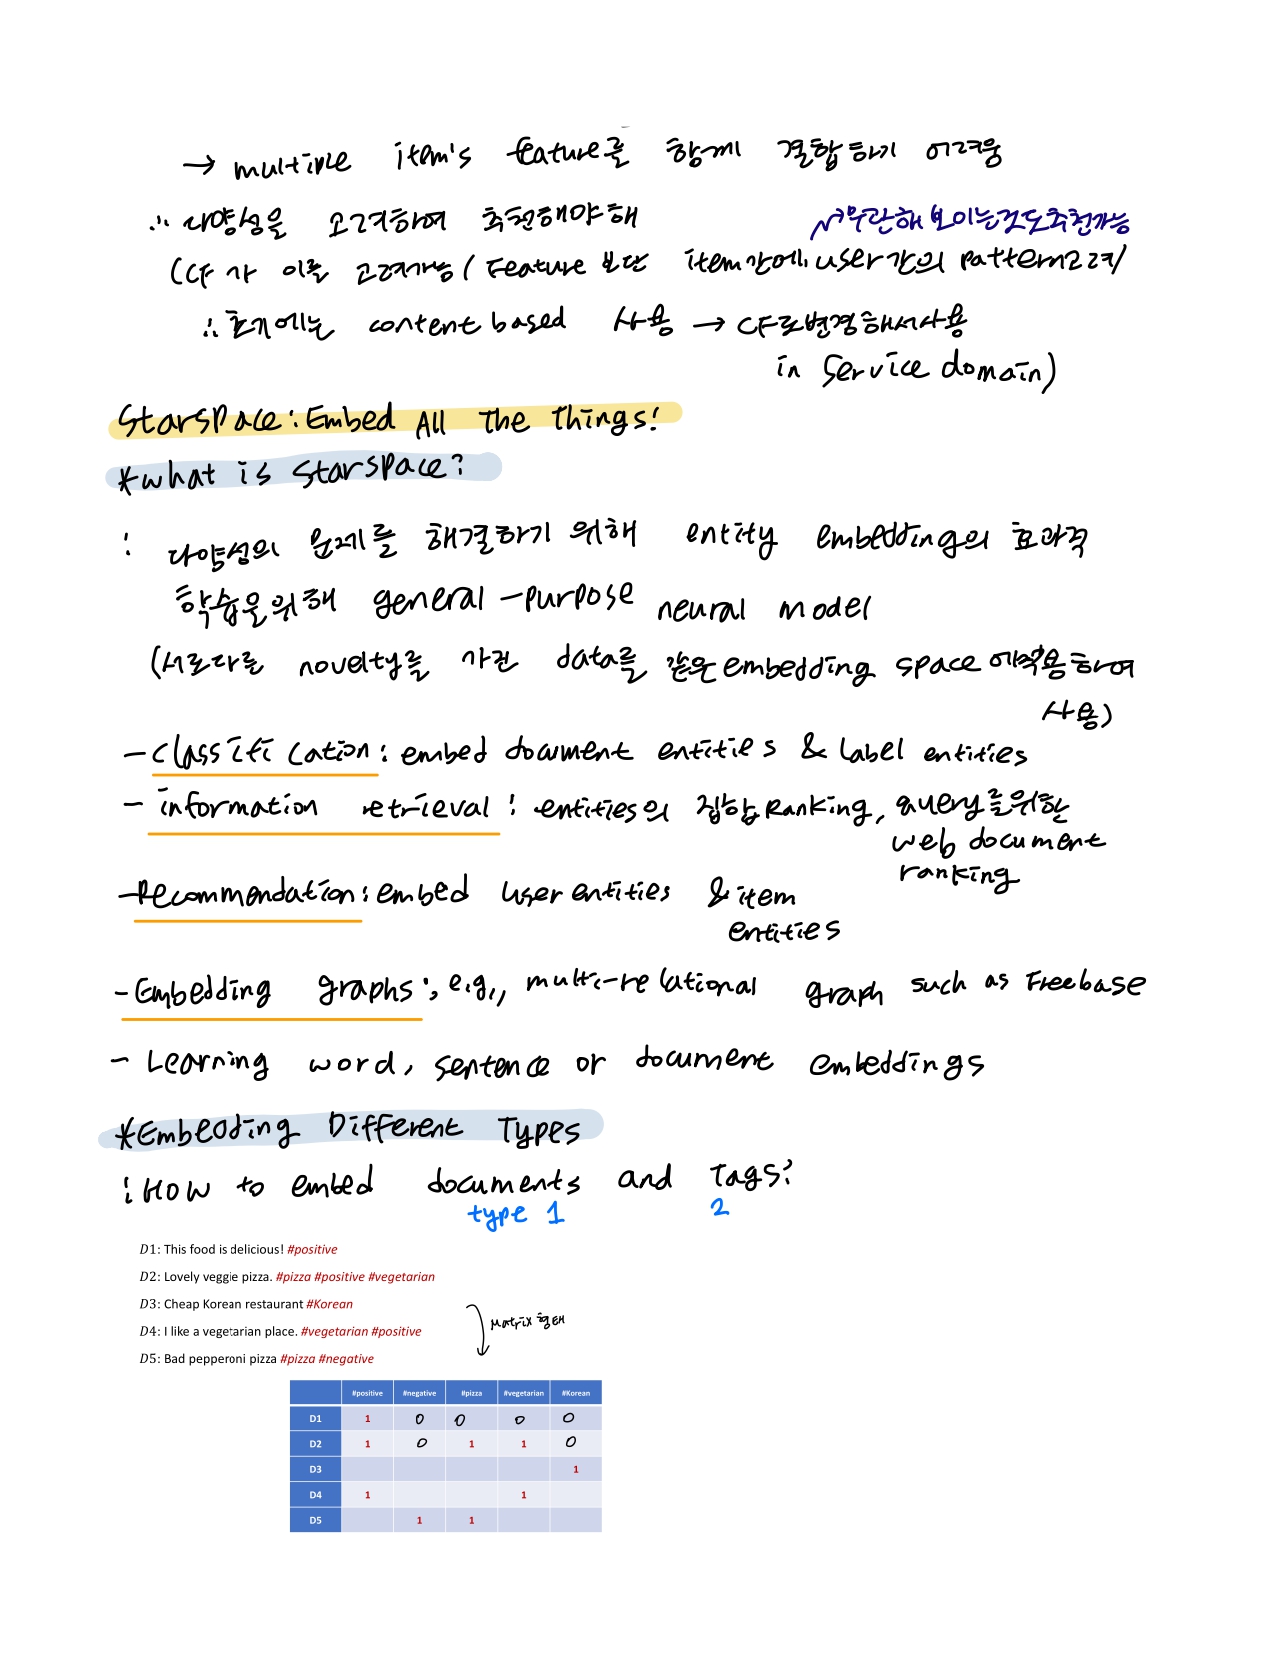 → multiple item's feature를 함께 결합하기 어려움
∴ 다양성을 고려하여 추천해야해
↗무관해 보이는것도추천가능
(CF가 이를 고려가능(Feature 보단 item간에, user간의 pattern고려)
∴ 초기에는 content based 사용 → CF로변경해서사용
in Service domain)
Starspace: Embed All The Things!
*what is starspace?
: 다양성의 문제를 해결하기 위해 entity embedding의 효과적
학습을위해 general-purpose neural model
(서로다른 novelty를 가진 data를 같은 embedding space에적용하여
사용)
- classification: embed document entities & label entities
- information retrieval: entities의 집합 Ranking, query를위한
web document
ranking
- Recommendation: embed user entities & item
entities
- Embedding graphs:, e.g., multi-relational graph such as Freebase
- Learning word, sentence or document embeddings
*Embedding Different Types
: How to embed documents and Tags?
type 1 2
D1: This food is delicious! #positive
D2: Lovely veggie pizza. #pizza #positive #vegetarian
D3: Cheap Korean restaurant #Korean
Matrix 형태
D4: I like a vegetarian place. #vegetarian #positive
D5: Bad pepperoni pizza #pizza #negative
#positive #negative #pizza #vegetarian #Korean
D1 1 0 0 0 0
D2 1 0 1 1 0
D3 1
D4 1 1
D5 1 1